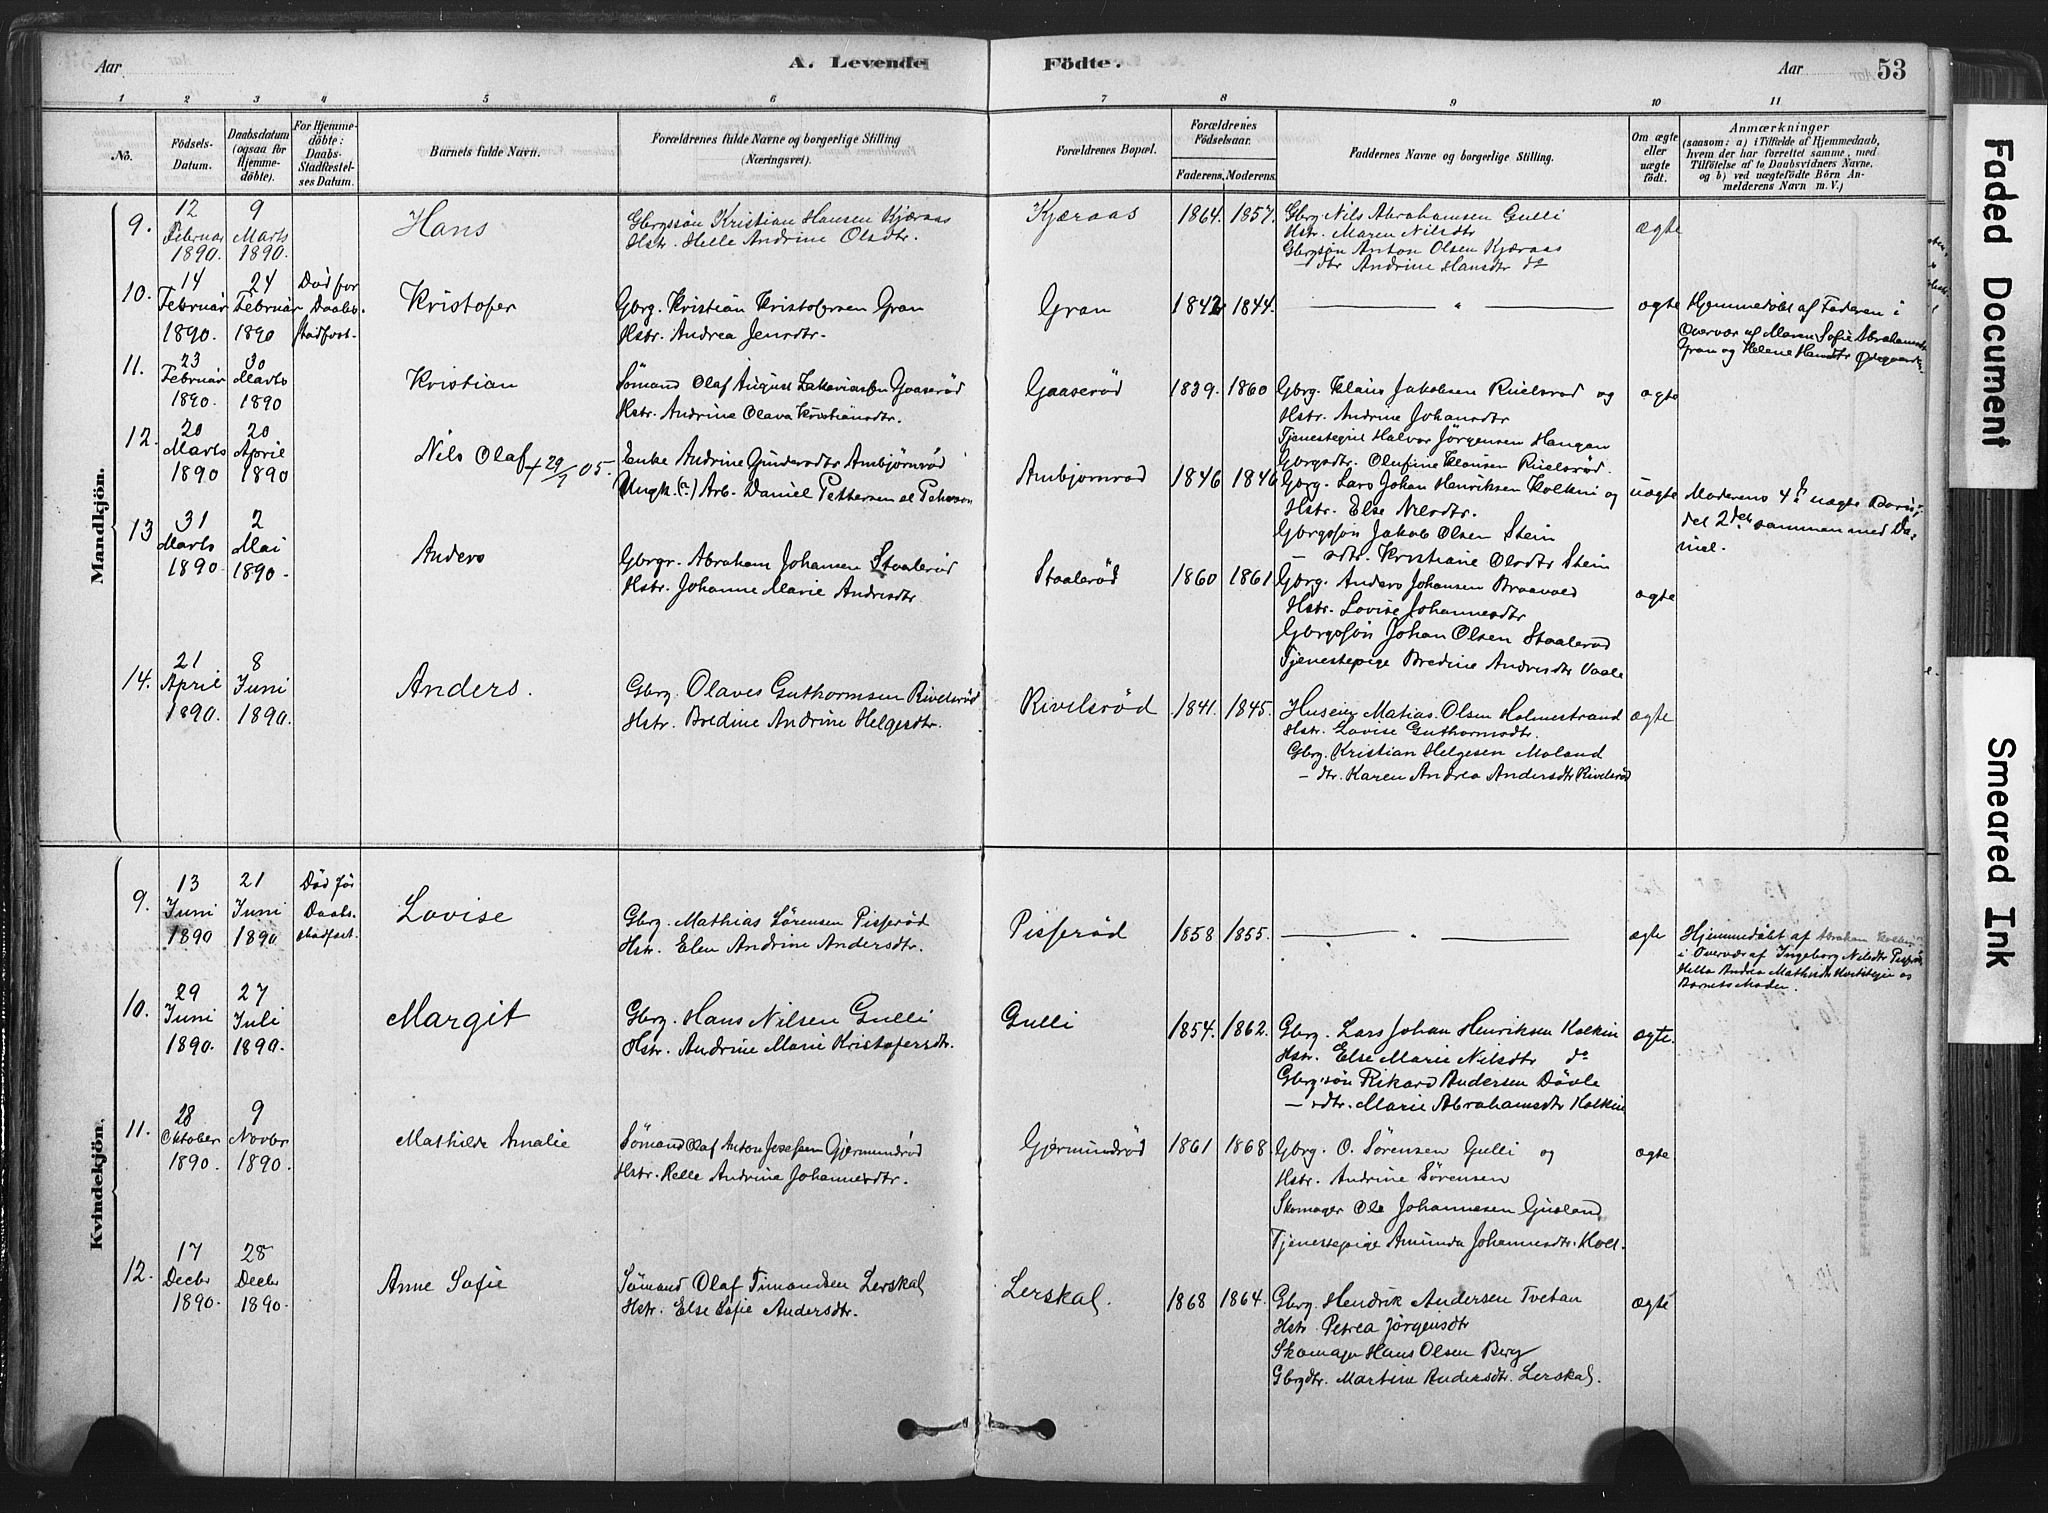 Aar
A. Levende Födte.
Aar
53
1 2 3 4 5 6 7 8 9 10 11
No.
Födsels-Datum.
Daabsdatum (ogsaa for Hjemme-döbte).
For Hjemme-döbte: Daabs-Stadfæstel-ses Datum.
Barnets fulde Navn.
Forældrenes fulde Navne og borgerlige Stilling (Næringsvei).
Forældrenes Bopæl.
Forældrenes Födselsaar.
Faderens. Moderens.
Faddernes Navne og borgerlige Stilling.
Om ægte eller uægte födt.
Anmærkninger
(saasom: a) i Tilfælde af Hjemmedaab, hvem der har forrettet samme, med Tilföielse af to Daabsvidners Navne, og b) ved uægtefödte Börn Anmelderens Navn m. V.)
Mandkjön.
9. 12 Februar 1890. 9 Marts 1890. Hans
Gbrgssøn Kristian Hansen Kjæraas
Hstr. Helle Andrine Olsdtr.
Kjæraas 1864. 1857.
Gbrg. Nils Abrahamsen Gulli
Hstr. Maren Nilsdtr
Gbrgsøn Anton Olsen Kjæraas
— dtr Andrine Hansdtr do
ægte
10. 14 Februar 1890. 24 Februar 1890 Død før Daabs-stadfæst. Kristofer
Gbrg. Kristian Kristofersen Gran
Hstr. Andrea Jensdtr.
Gran 1842 1844. — " —
ægte
Hjemmedøbt af Faderen i
Overvær af Maren Sofie Abrahamsdtr
Gran og Helene Hansdtr
11. 23 Februar 1890. 30 Marts 1890 Kristian
Sømand Olaf August Zakariassen Gaaserød
Hstr. Andrine Olava Kristiansdtr.
Gaaserød 1839. 1860
Gbrg. Klaus Jakobsen Ruelsrød og
Hstr. Andrine Johansdtr
Halvor Jørgensen Haugan
Gbrgsdtr. Olufine Klausen Ruelsrød.
ægte
12. 20 Marts 1890 20 April 1890 Nils Olaf + 29/1 05.
Enke Andrine Gundersdtr Ambjørnrød
Ungk. (?) Arb. Daniel Pettersen el Pehrsson
Ambjørnrød 1846 1846
Gbrg. Lars Johan Henriksen Kolkin og
Hstr. Else Nilsdtr.
Gbrgssøn Jakob Olsen Stein
— sdtr. Kristiane Olsdtr Stein
uægte
Moderens 4de uægte Barn,
det 2det sammen med Da-
niel.
13 31 Marts 1890. 2 Mai 1890. Anders
Gbrgr. Abraham Johansen Staalerød
Hstr. Johanne Marie Andersdtr
Staalerød 1860 1861
Gbrg. Anders Johansen Braavold
Hstr. Lovise Johannesdtr
Gbrgssøn Johan Olsen Staalerød
Tjenestepige Bredine Andersdtr Vaale
ægte
14. 21 April 1890. 8 Juni 1890. Anders.
Gbrg. Olaves Guthormsen Rivelsrød
Hstr. Bredine Andrine Helgesdtr.
Rivelsrød 1841. 1845.
Huseier Matias Olsen Holmestrand
Hstr. Lovise Guthormsdtr.
Gbrg. Kristian Helgesen Moland
— dtr. Karen Andrea Andersdtr Rivelsrød
ægte
Kvindekjön.
9. 13 Juni 1890 21 Juni 1890. Død før Daabs-stadfæst. Lovise
Gbrg. Mathias Sørensen Pisserød
Hstr. Elen Andrine Andersdtr.
Pisserød 1858 1855. — " —
ægte
Hjemmedøbt af Abraham Kolkin
i Overvær af Ingeborg Nilsdtr Pisserød
Helta Andrea Mathisdtr og
Barnets Moder.
10. 29 Juni 1890. 27 Juli 1890. Margit
Gbrg. Hans Nilsen Gulli
Hstr. Andrine Marie Kristofersdtr.
Gulli 1854. 1862.
Gbrg. Lars Johan Henriksen Kolkin
Hstr. Else Marie Nilsdtr do
Gbrg.søn Rikard Andersen Døvle
— sdtr. Marie Abrahamsdtr Kolkin
ægte.
11. 28 Oktober 1890. 9 Novbr 1890. Mathilde Amalie
Sømand Olaf Anton Josefsen Gjermundrød
Hstr. Helle Andrine Johannesdtr.
Gjermundrød 1861 1868.
Gbrg. O. Sørensen Gulli og
Hstr. Andrine Sørensen
Skomager Ole Johannesen Gusland
Tjenestepige Amunda Johannesdtr. Holt.
ægte
12. 17 Decbr 1890. 28 Decbr 1890. Anne Sofie
Sømand Olaf Timandsen Lerskal
Hstr. Else Sofie Andersdtr.
Lerskal. 1868 1864.
Gbrg. Hendrik Andersen Tvetan
Hstr. Petrea Jørgensdtr
Skomager Hans Olsen Berg
Gbrgdtr. Martine Andersdtr. Lerskal.
ægte
Faded Document
Smeared Ink